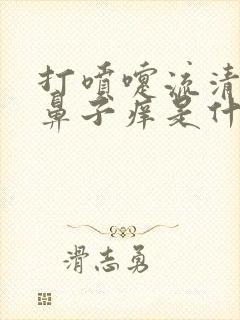 打喷嚏流清
鼻子痒是什
滑志勇